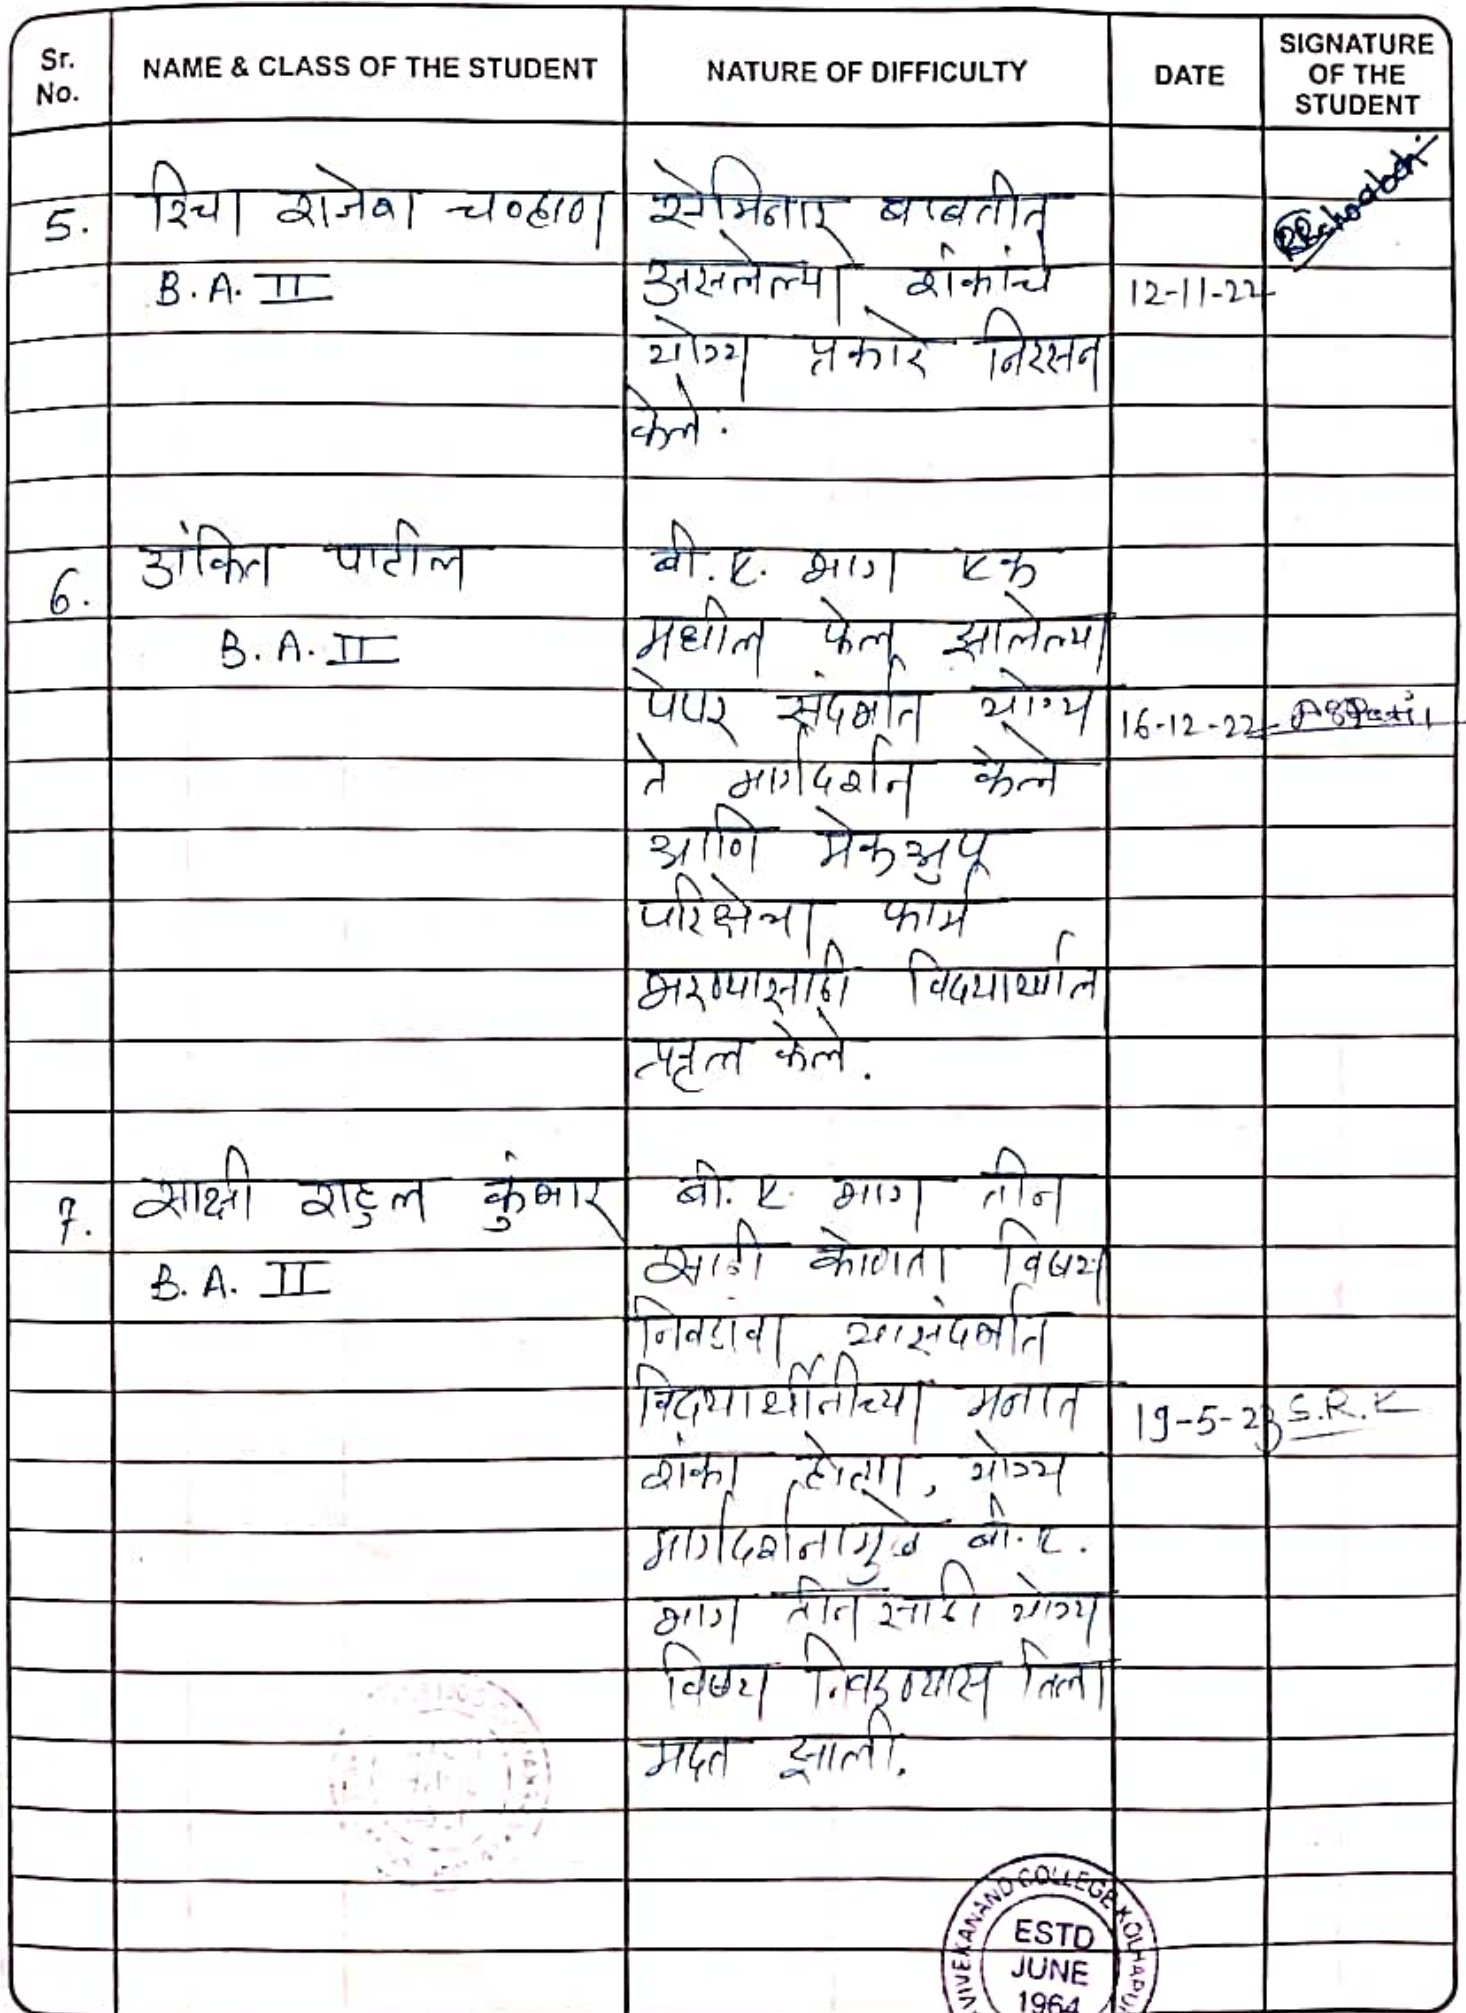 Sr. No.
NAME & CLASS OF THE STUDENT
NATURE OF DIFFICULTY
DATE
SIGNATURE OF THE STUDENT
5.
रिचा राजेश चव्हाण
B. A. II
सेमिनार बाबतीत
असलेल्या शंकांचे
योग्य प्रकारे निरसन
केले.
12-11-22
6.
अंकित पाटील
B. A. II
बी. ए. भाग एक
मधील फेल झालेल्या
पेपर संदर्भात योग्य
ते मार्गदर्शन केले
आणि मेकअुप
परिक्षेचा फार्म
भरण्यासाठी विद्यार्थ्याला
प्रवृत्त केले.
16-12-22
ASPatil
7.
साक्षी राहुल कुंभार
B. A. II
बी. ए. भाग तीन
साठी कोणता विषय
निवडावा यासंदर्भात
विद्यार्थीनीच्या मनात
शंका होत्या, योग्य
मार्गदर्शनामुळे बी. ए.
भाग तीन साठी योग्य
विषय निवडण्यास तिला
मदत झाली.
19-5-23
S.R.K
VIVEKANAND COLLEGE KOLHAPUR
ESTD
JUNE
1964